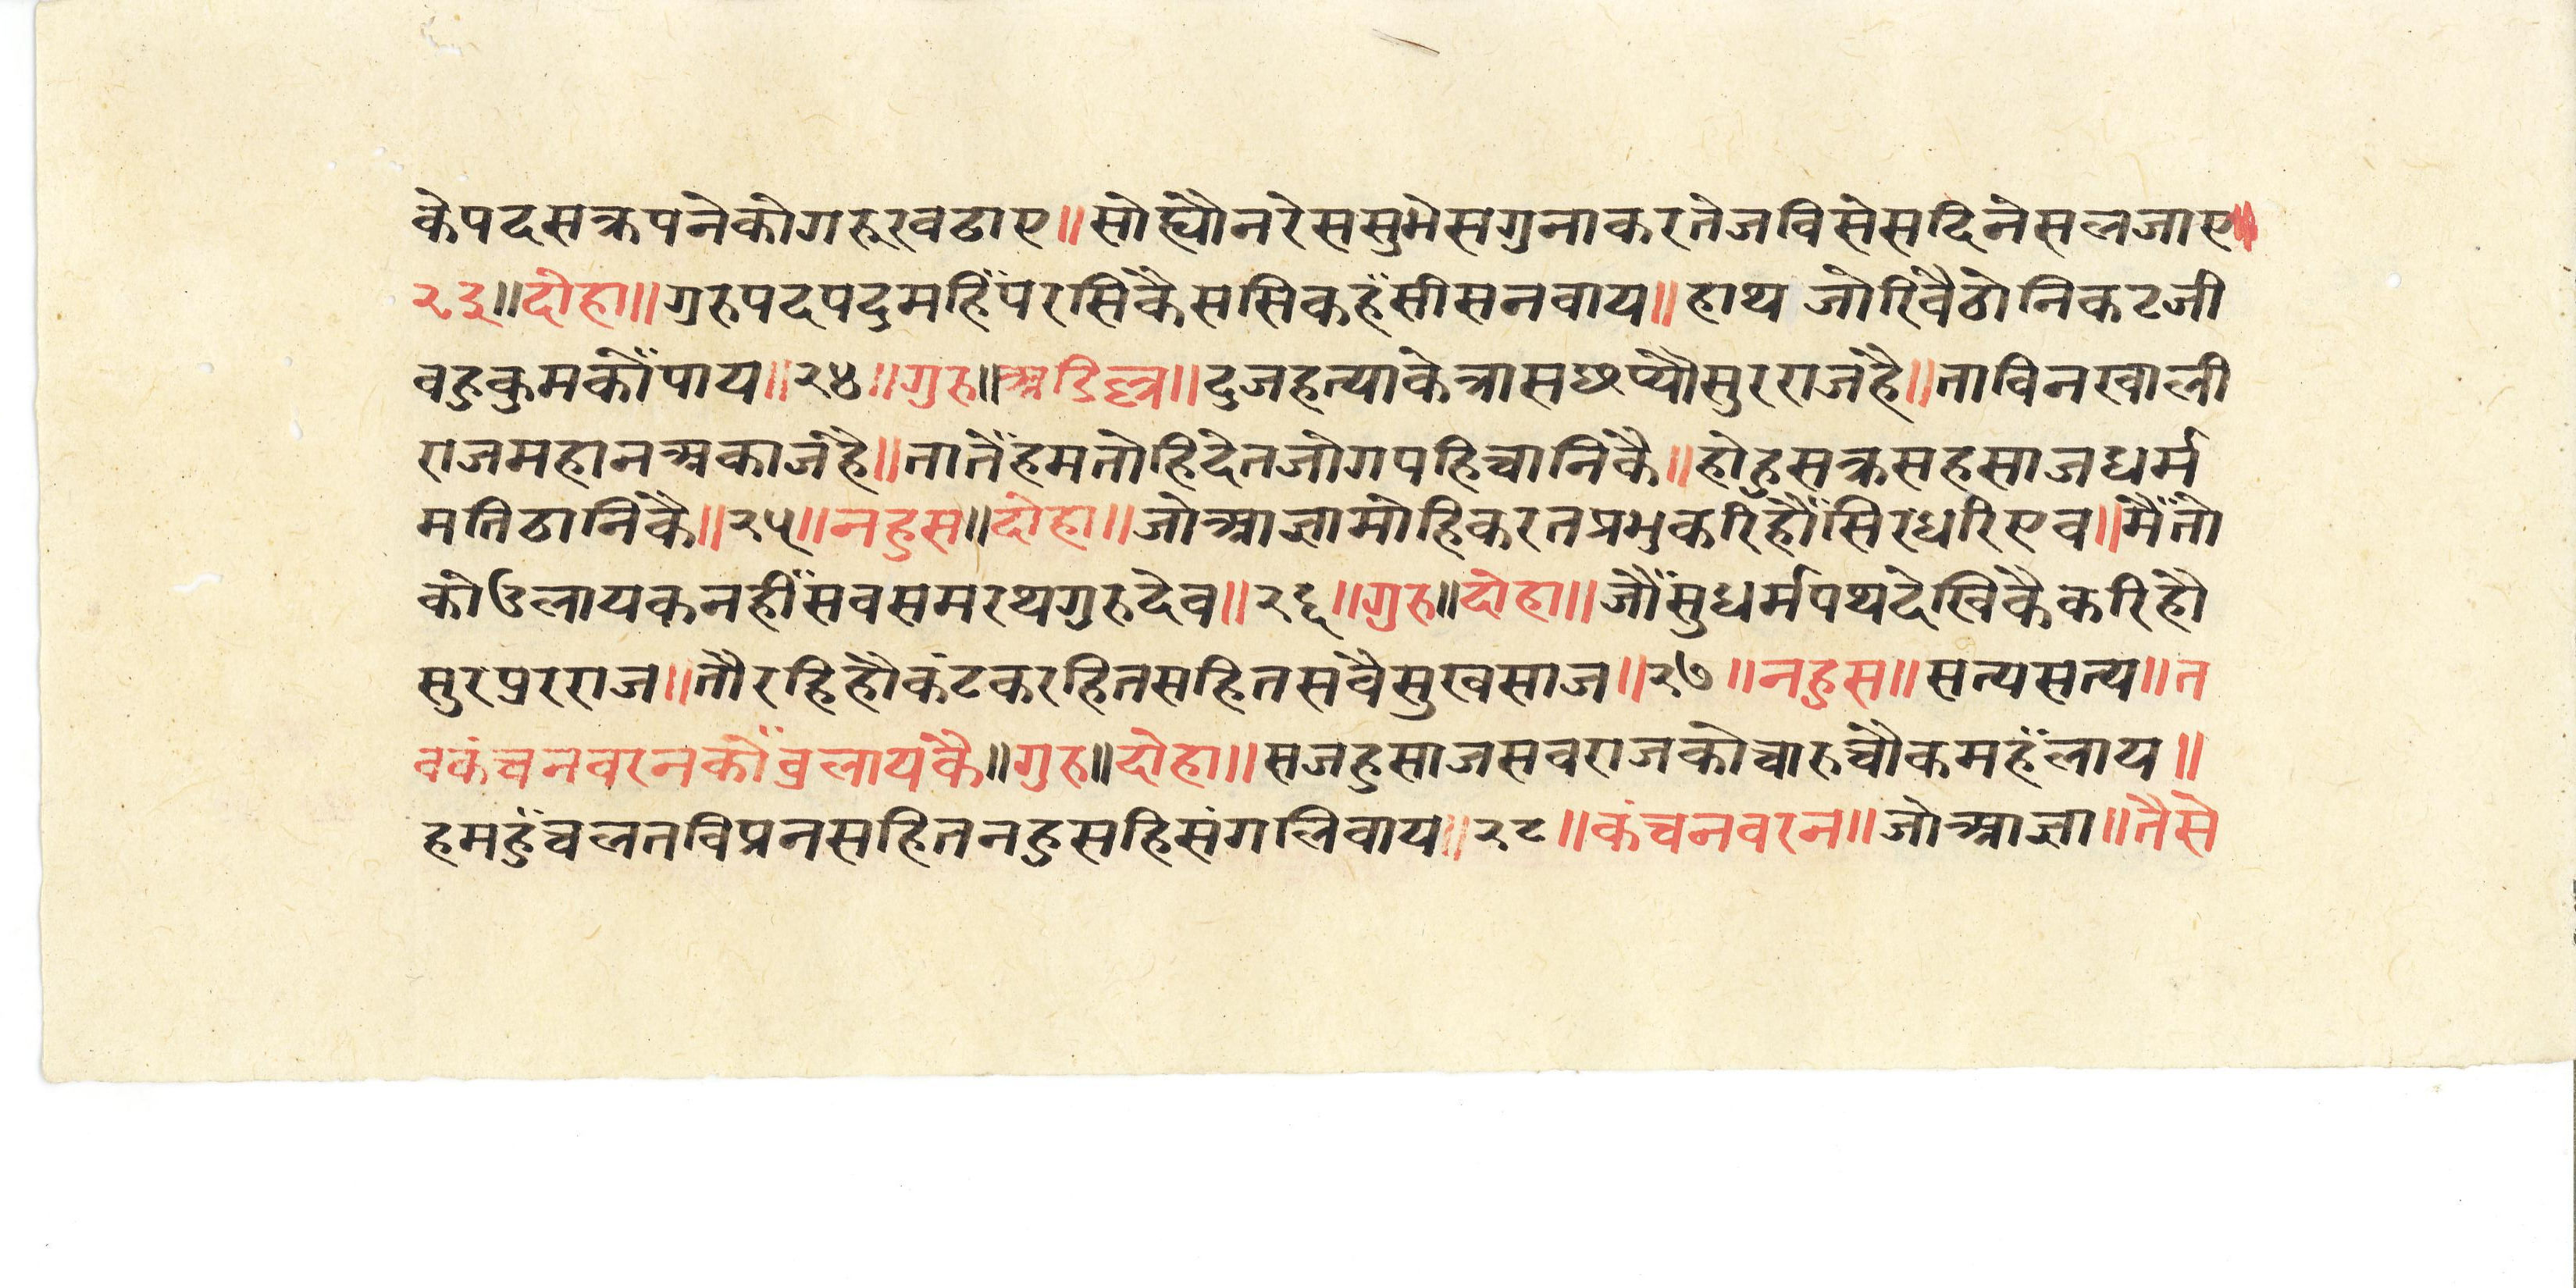 केपदसक्रपनेकोगरूरवढाए॥सोह्यौनरेससुभेसगुनाकरतेजविसेसदिनेसलजाए॥
२३॥दोहा॥गुरुपदपदुमहिंपरसिकैससिकहँसीसनवाय॥हाथ जोरिवैठोनिकटजी
वहुकुमकौंपाय॥२४॥गुरु॥अडिल्ल॥दुजहत्याकेत्रासछप्यौसुरराजहै॥ताविनखाली
राजमहानअकाजहै॥तातेंहमतोहिदेतजोगपहिचानिकै॥होहुसक्रसहसाजधर्म
मतिठानिकै॥२५॥नहुस॥दोहा॥जोआज्ञामोहिकरतप्रभुकरिहौंसिरधरिएव॥मैंतो
कोउलायकनहींसवसमरथगुरुदेव॥२६॥गुरु॥दोहा॥जौंसुधर्मपथदेखिकैकरिहौ
सुरपुरराज॥तौरहिहौकंटकरहितसहितसवैसुखसाज॥२७॥नहुस॥सत्यसत्य॥त
वकंचनवरनकौंवुलायकै॥गुरु॥दोहा॥सजहुसाजसवराजकोचारुचौकमहँलाय॥
हमहुंचलतविप्रनसहितनहुसहिसंगलिवाय॥२८॥कंचनवरन॥जोआज्ञा॥तैसे